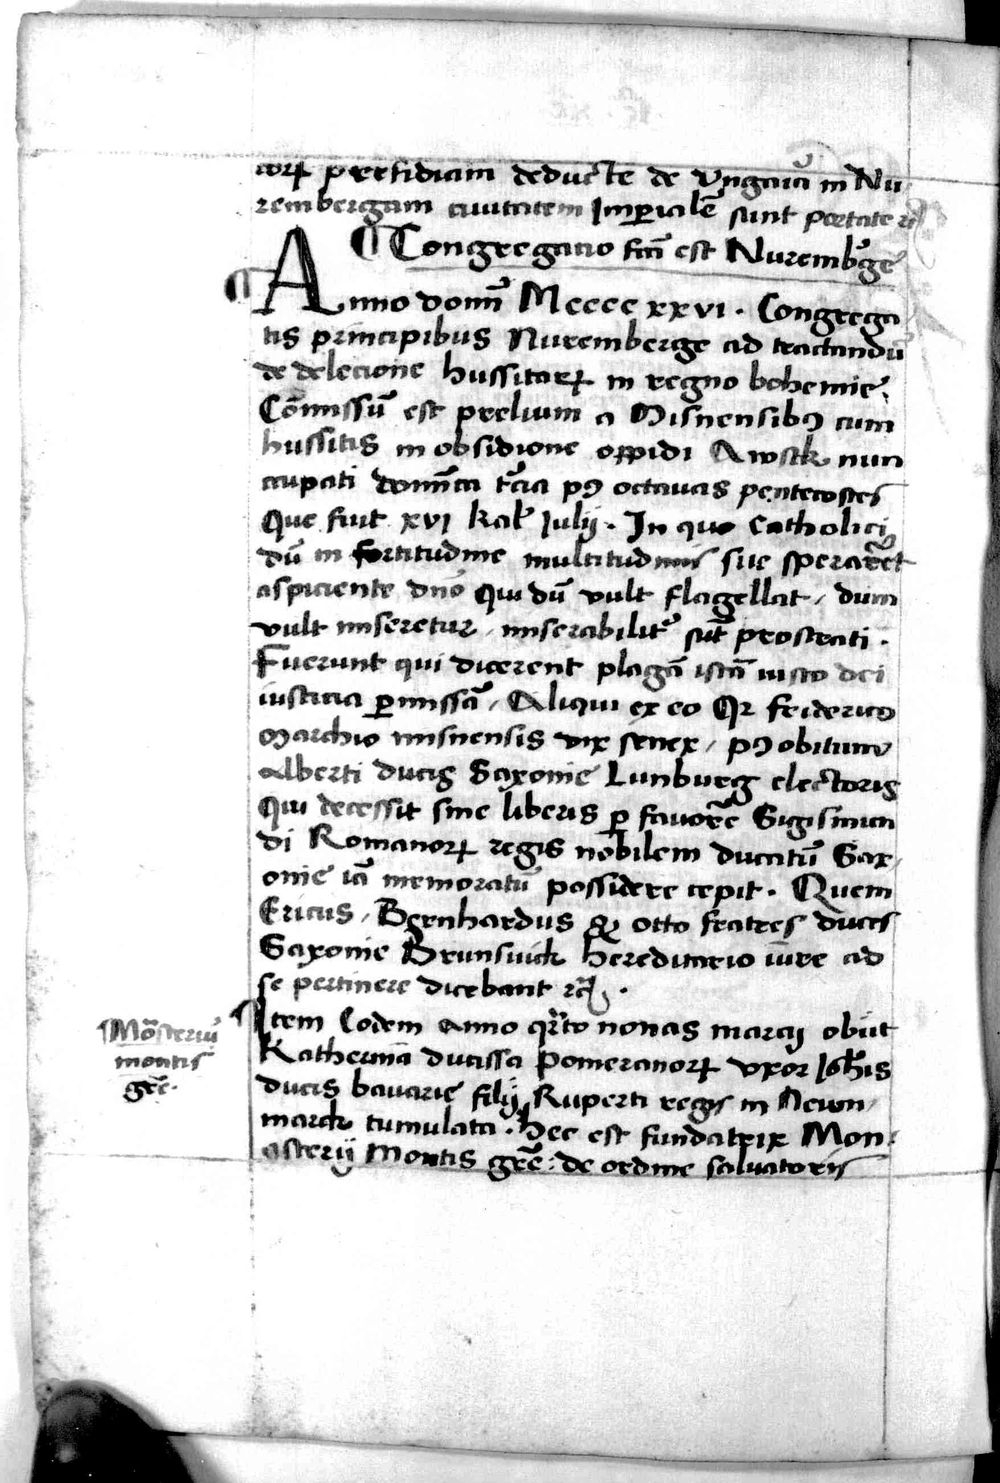 torꝝ perfidiam deducte de Vngaria in Nu-
rembergam ciuitatem Imperialē sunt portate rc̄
¶ Congregacio fc̄a est Nurembꝰge
¶ Anno domī Mcccc xxvi . Congrega
tis principibus Nuremberge ad tractandū
de delecione hussitarꝝ in regno bohemie.
Cōmissū est prelium a Misnensibꝰ cum
hussitis in obsidione oppidi Awsck nun
cupati domīca t̄cia pꝰ octauas pentecostes
Que fuit xvi kal̄ Iulij . In quo Catholici
dū in fortitudine multitudinis sue sperarēt
aspiciente dn̄o Qui dū vult flagellat / dum
vult miseretur / miserabilit̄ sūt prostrati .
Fuerunt qui dicerent plagā istā iusto dei
iusticia ꝑmissā / Aliqui ex eo Qꝛ feidericꝰ
Marchio misnensis vir senex / pꝰ obitum
Alberti ducis Saxonie Lunburg electoris
Qui decessit sine liberis ꝑ fauorē Sigismun
di Romanorꝝ regis nobilem ducatū Sax/
onie iā memoratū possidere cepit . Quem
Ericus / Bernhardus & otto fratres duces
Saxonie Brunswick hereditario iure ad
se pertinere dicebant rc̄ .
Item Eodem Anno qr̄to nonas marcij obijt
Katherina ducissa Pomeranorꝝ vxor Ioh̄is
ducis bauarie filij Ruperti regis in Newn/
marck tumulata . Hec est fundatrix Mon-
asterij Montis gr̄e : de ordine saluatoris
Mōsteriū
montis
gr̄e .